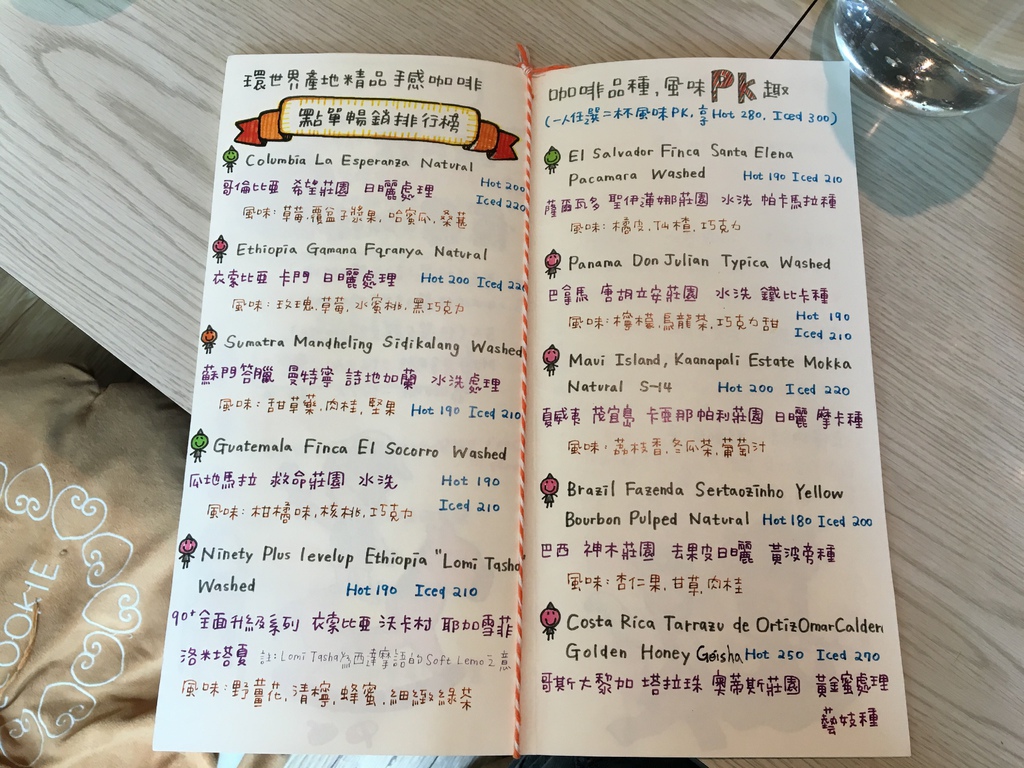 環世界產地精品手感咖啡
點單暢銷排行榜
Columbia La Esperanza Natural
哥倫比亞 希望莊園 日曬處理 Hot 200
Iced 220
風味:草莓,覆盆子漿果,哈蜜瓜,桑葚
Ethiopia Gamana Fqranya Natural
衣索比亞 卡門 日曬處理 Hot 200 Iced 220
風味:玫瑰,草莓,水蜜桃,黑巧克力
Sumatra Mandheling Sidikalang Washed
蘇門答臘 曼特寧 詩地加蘭 水洗處理
風味:甜草藥,肉桂,堅果 Hot 190 Iced 210
Guatemala Finca El Socorro Washed
瓜地馬拉 救命莊園 水洗 Hot 190
風味:柑橘味,核桃,巧克力 Iced 210
Ninety Plus levelup Ethiopia "Lomi Tasha
Washed Hot 190 Iced 210
90+全面升級系列 衣索比亞 沃卡村 耶加雪菲
洛米塔夏 註:Lomi Tasha為西達摩語的Soft Lemo之意
風味:野薑花,清檸,蜂蜜,細緻綠茶
咖啡品種,風味PK趣
(一人任選二杯風味PK,享Hot 280, Iced 300)
El Salvador Finca Santa Elena
Pacamara Washed Hot 190 Iced 210
薩爾瓦多 聖伊蓮娜莊園 水洗 帕卡馬拉種
風味:橘皮,仙楂,巧克力
Panama Don Julian Typica Washed
巴拿馬 唐胡立安莊園 水洗 鐵比卡種
風味:檸檬,烏龍茶,巧克力甜 Hot 190
Iced 210
Maui Island, Kaanapali Estate Mokka
Natural S-14 Hot 200 Iced 220
夏威夷 茂宜島 卡亞那帕利莊園 日曬 摩卡種
風味:荔枝香,冬瓜茶,葡萄汁
Brazil Fazenda Sertaozinho Yellow
Bourbon Pulped Natural Hot 180 Iced 200
巴西 神木莊園 去果皮日曬 黃波旁種
風味:杏仁果,甘草,肉桂
Costa Rica Tarrazu de OrtizOmarCalder
Golden Honey Geisha Hot 250 Iced 270
哥斯大黎加 塔拉珠 奧蒂斯莊園 黃金蜜處理
藝妓種
OOKIE